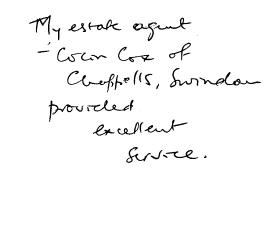 My estate agent
- Colin Cox of
Chappells, Swindon
provided
excellent
service.